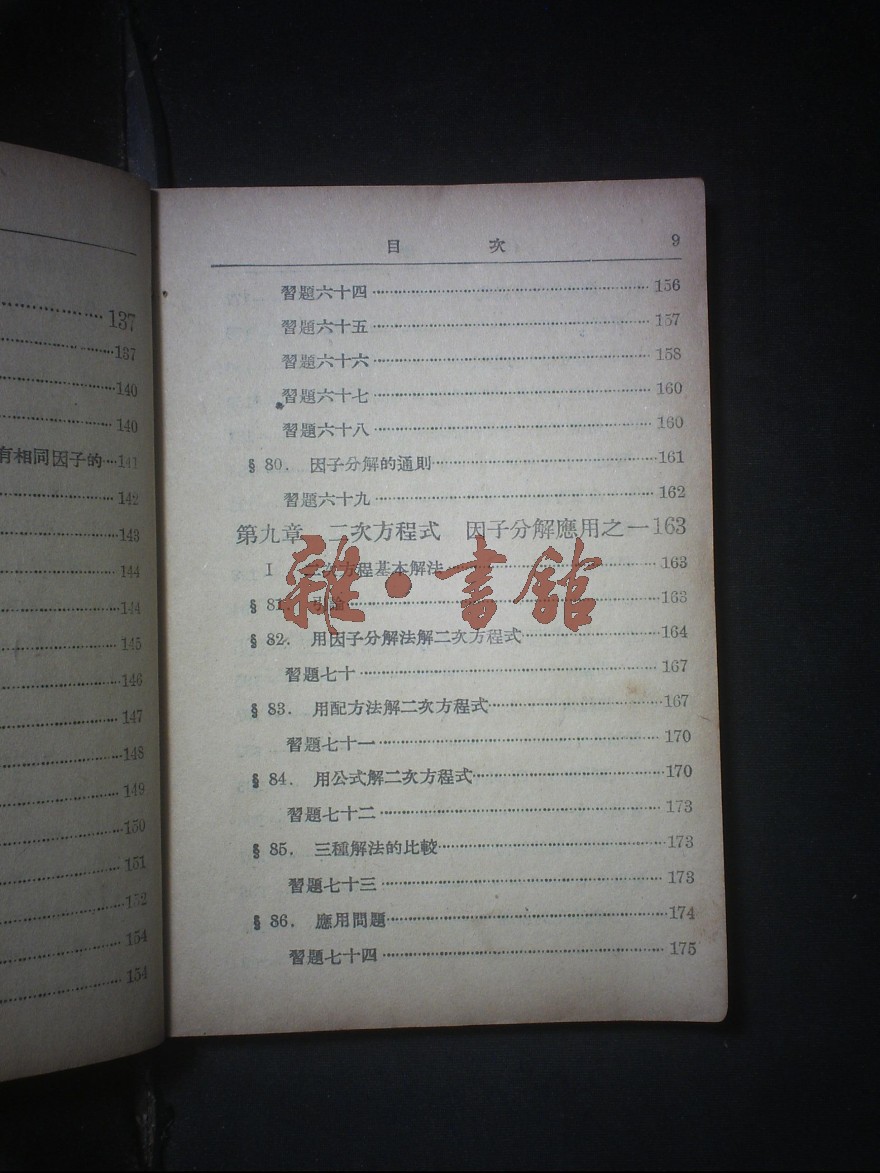 137
137
140
140
有相同因子的…141
142
143
144
144
145
146
147
148
149
150
151
152
154
154
目 次 9
習題六十四 156
習題六十五 157
習題六十六 158
習題六十七 160
習題六十八 160
§ 80. 因子分解的通則 161
習題六十九 162
第九章 二次方程式 因子分解應用之一 163
I 二次方程基本解法 163
§ 81. 引論 163
雜·書館
§ 82. 用因子分解法解二次方程式 164
習題七十 167
§ 83. 用配方法解二次方程式 167
習題七十一 170
§ 84. 用公式解二次方程式 170
習題七十二 173
§ 85. 三種解法的比較 173
習題七十三 173
§ 86. 應用問題 174
習題七十四 175